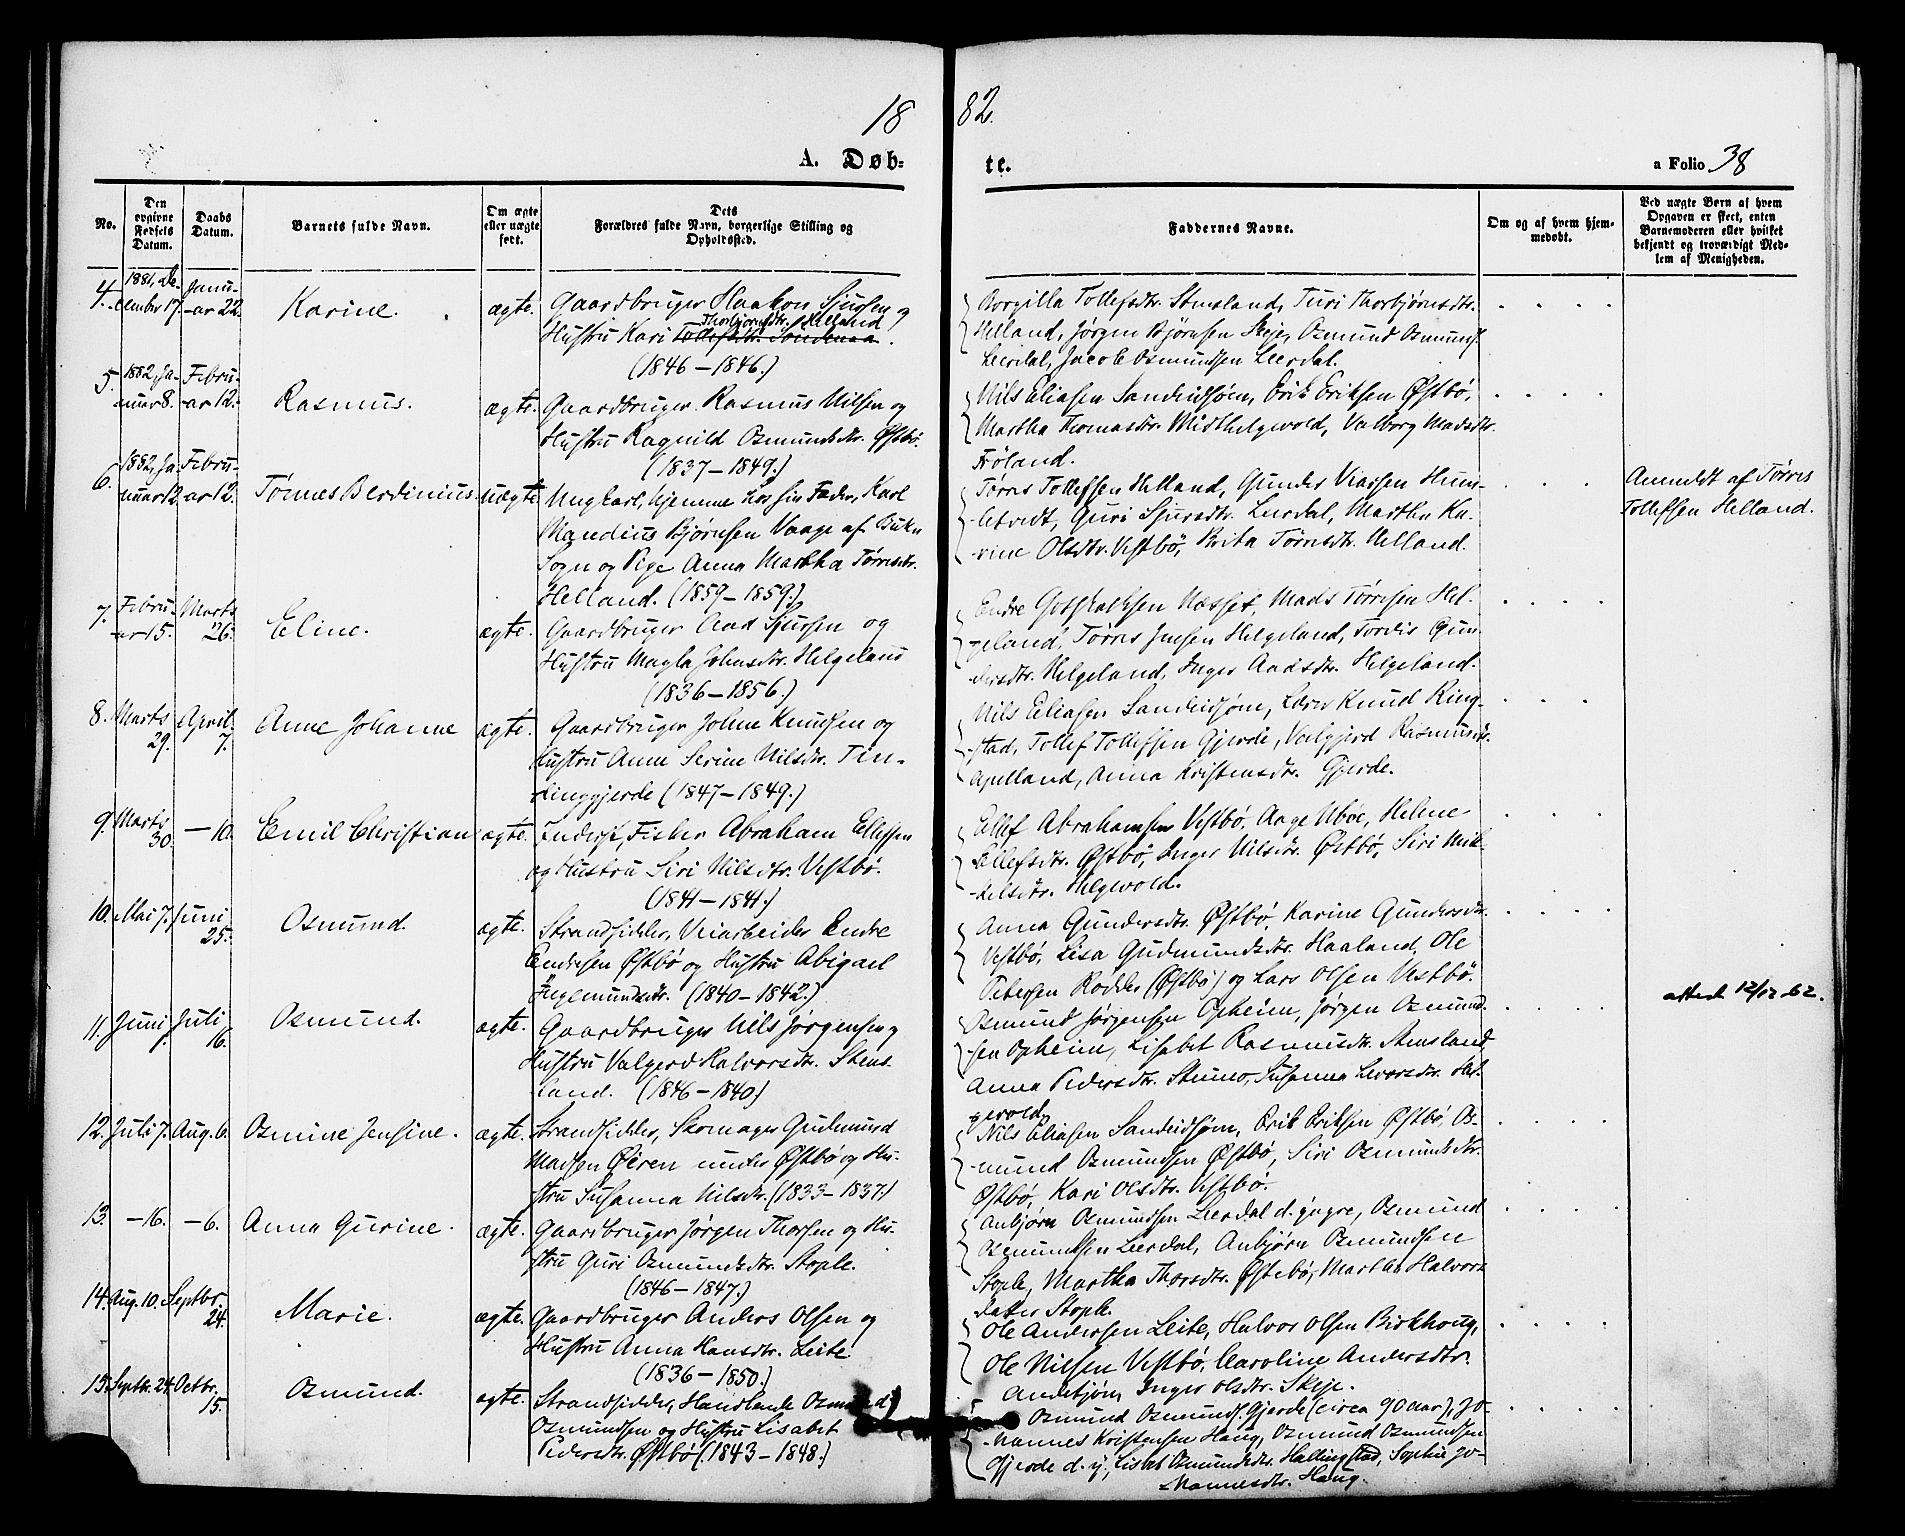 18
82.
A. Døb-
te.
a Folio 38
No.
Den opgivne Fødsels Datum.
Daabs Datum.
Barnets fulde Navn.
Om ægte eller uægte født.
Dets Forældres fulde Navn, borgerlige Stilling og Opholdssted.
Faddernes Navne.
Om og af hvem hjemmedøbt.
Ved uægte Børn af hvem Opgaven er skeet, enten Barnemoderen eller hvilket bekjendt og troværdigt Medlem af Menigheden.
4. 1881, December 17. Januar 22. Karine. ægte. Gaardbruger Haakon Sjursen og
Hustru Kari Thorbjørnsdtr. Helland.
(1846-1846.)
Torgilla Tollefsdtr. Stensland, Turi Thorbjørnsdtr.
Helland, Jørgen Bjørnsen Skeje, Osmund Osmunds.
Leerdal, Jacob Osmundsen Leerdal.
5. 1882, Januar 8. Februar 12. Rasmus. ægte. Gaardbruger Rasmus Nilsen og
Hustru Ragnild Osmundsdtr. Østbø.
(1837-1849.)
Nils Eliasen Sandeidsøen, Erik Eriksen Østbø,
Martha Thomasdtr. Midthelgevold, Valborg Madsdtr.
Frøland.
6. 1882, Januar 12. Februar 12. Tønnes Berdinius. uægte. Ungkarl, hjemme hos sin Fader, Karl
Mandius Bjørnsen Vaage af Bukn
Sogn og Pige Anna Martha Tørresdtr.
Helland. (1859-1859.)
Tørres Tollefsen Helland, Gunder Viarsen Hum-
letvedt, Guri Sjursdtr. Leerdal, Martha Ka-
rine Olsdtr. Vestbø, Brita Tørresdtr. Helland.
Anmeldt af Tørres
Tollefsen Helland.
7. Februar 15. Marts 26. Eline. ægte. Gaardbruger Aad Sjursen og
Hustru Magla Johnsdtr. Helgeland
(1836-1856.)
Endre Gotskalksen Næsset, Mads Tørresen Hel-
geland, Tørres Jensen Helgeland, Tordis Gun-
dersdtr. Helgeland, Inger Aadsdtr. Helgeland.
8. Marts 29. April 7. Anne Johanne ægte. Gaardbruger Johne Knudsen og
Hustru Anne Serine Nilsdtr. Tin-
dinggjerde (1847-1849.)
Nils Eliasen Sandeidsøen, Lærer Knud Ring-
stad, Tollef Tollefsen Gjerde, Valgjerd Rasmusdtr.
Apelland, Anna Kristensdtr. Gjerde.
9. Marts 30. -10. Emil Christian ægte. Inderst, Fisker Abraham Ellefsen
og Hustru Siri Nilsdtr. Vestbø.
(1841-1841.)
Ellef Abrahamsen Vestbø, Aage Ubøe, Helene
Ellefsdtr. Østbø, Inger Nilsdtr. Østbø, Siri Mik-
kelsdtr. Helgevold.
10. Mai 7. Juni 25. Osmund. ægte. Strandsidder, Veiarbeider Endre
Endresen Østbø og Hustru Abigael
Ingemundsdtr. (1840-1842.)
Anna Gundersdtr. Østbø, Karine Gundersdtr.
Vestbø, Lisa Gudmundsdtr. Haaland, Ole
Petersen Rødder (Østbø) og Lars Olsen Vestbø.
11. Juni 7. Juli 16. Osmund. ægte. Gaardbruger Nils Jørgensen og
Hustru Valgerd Halvorsdtr. Stens-
land. (1846-1840.)
Osmund Jørgensen Opheim, Jørgen Osmund-
sen Opheim, Lisabet Rasmusdtr. Stensland
Anna Pedersdtr. Stumo, Susanna Leversdtr. Hel-
gevold,
attest 12/12 62.
12. Juli 7. Aug. 6. Osmine Jensine. ægte. Strandsidder, Skomager Gudmund
Madsen Øiren under Østbø og Hu-
stru Susanna Nilsdtr. (1833-1837)
Nils Eliasen Sandeidsøen, Erik Eriksen Østbø, Os-
mund Osmundsen Østbø, Siri Osmundsdtr.
Østbø, Kari Olsdtr. Vestbø.
13. -16. -6. Anna Gurine. ægte. Gaardbruger Jørgen Thorsen og Hu-
stru Guri Osmundsdtr. Stople.
(1846-1847.)
Anbjørn Osmundsen Leerdal d. yngre, Osmund
Osmundsen Leerdal, Anbjørn Osmundsen
Stople, Martha Thorsdtr. Østebø, Martha Halvors-
datter Stople.
14. Aug. 10. Septbr. 24. Marie. ægte. Gaardbruger Anders Olsen og
Hustru Anna Hansdtr. Leite
(1836-1850.)
Ole Andersen Leite, Halvor Olsen Birkhoug,
Ole Nilsen Vestbø, Caroline Andersdtr.
Andebjøn, Inger Olsdtr. Skeje.
15. Septbr. 24. Octbr. 15. Osmund. ægte. Strandsidder, Handlende Osmund
Osmundsen og Hustru Lisabet
Pedersdtr. Østbø (1843-1848.)
Osmund Osmunds. Gjerde (circa 90 aar), Jo-
hannes Kristensen Haug, Osmund Osmundsen
Gjerde d. y., Lisbet Osmundsdtr. Hallingstad, Sophie Jo-
hannesdtr. Haug.